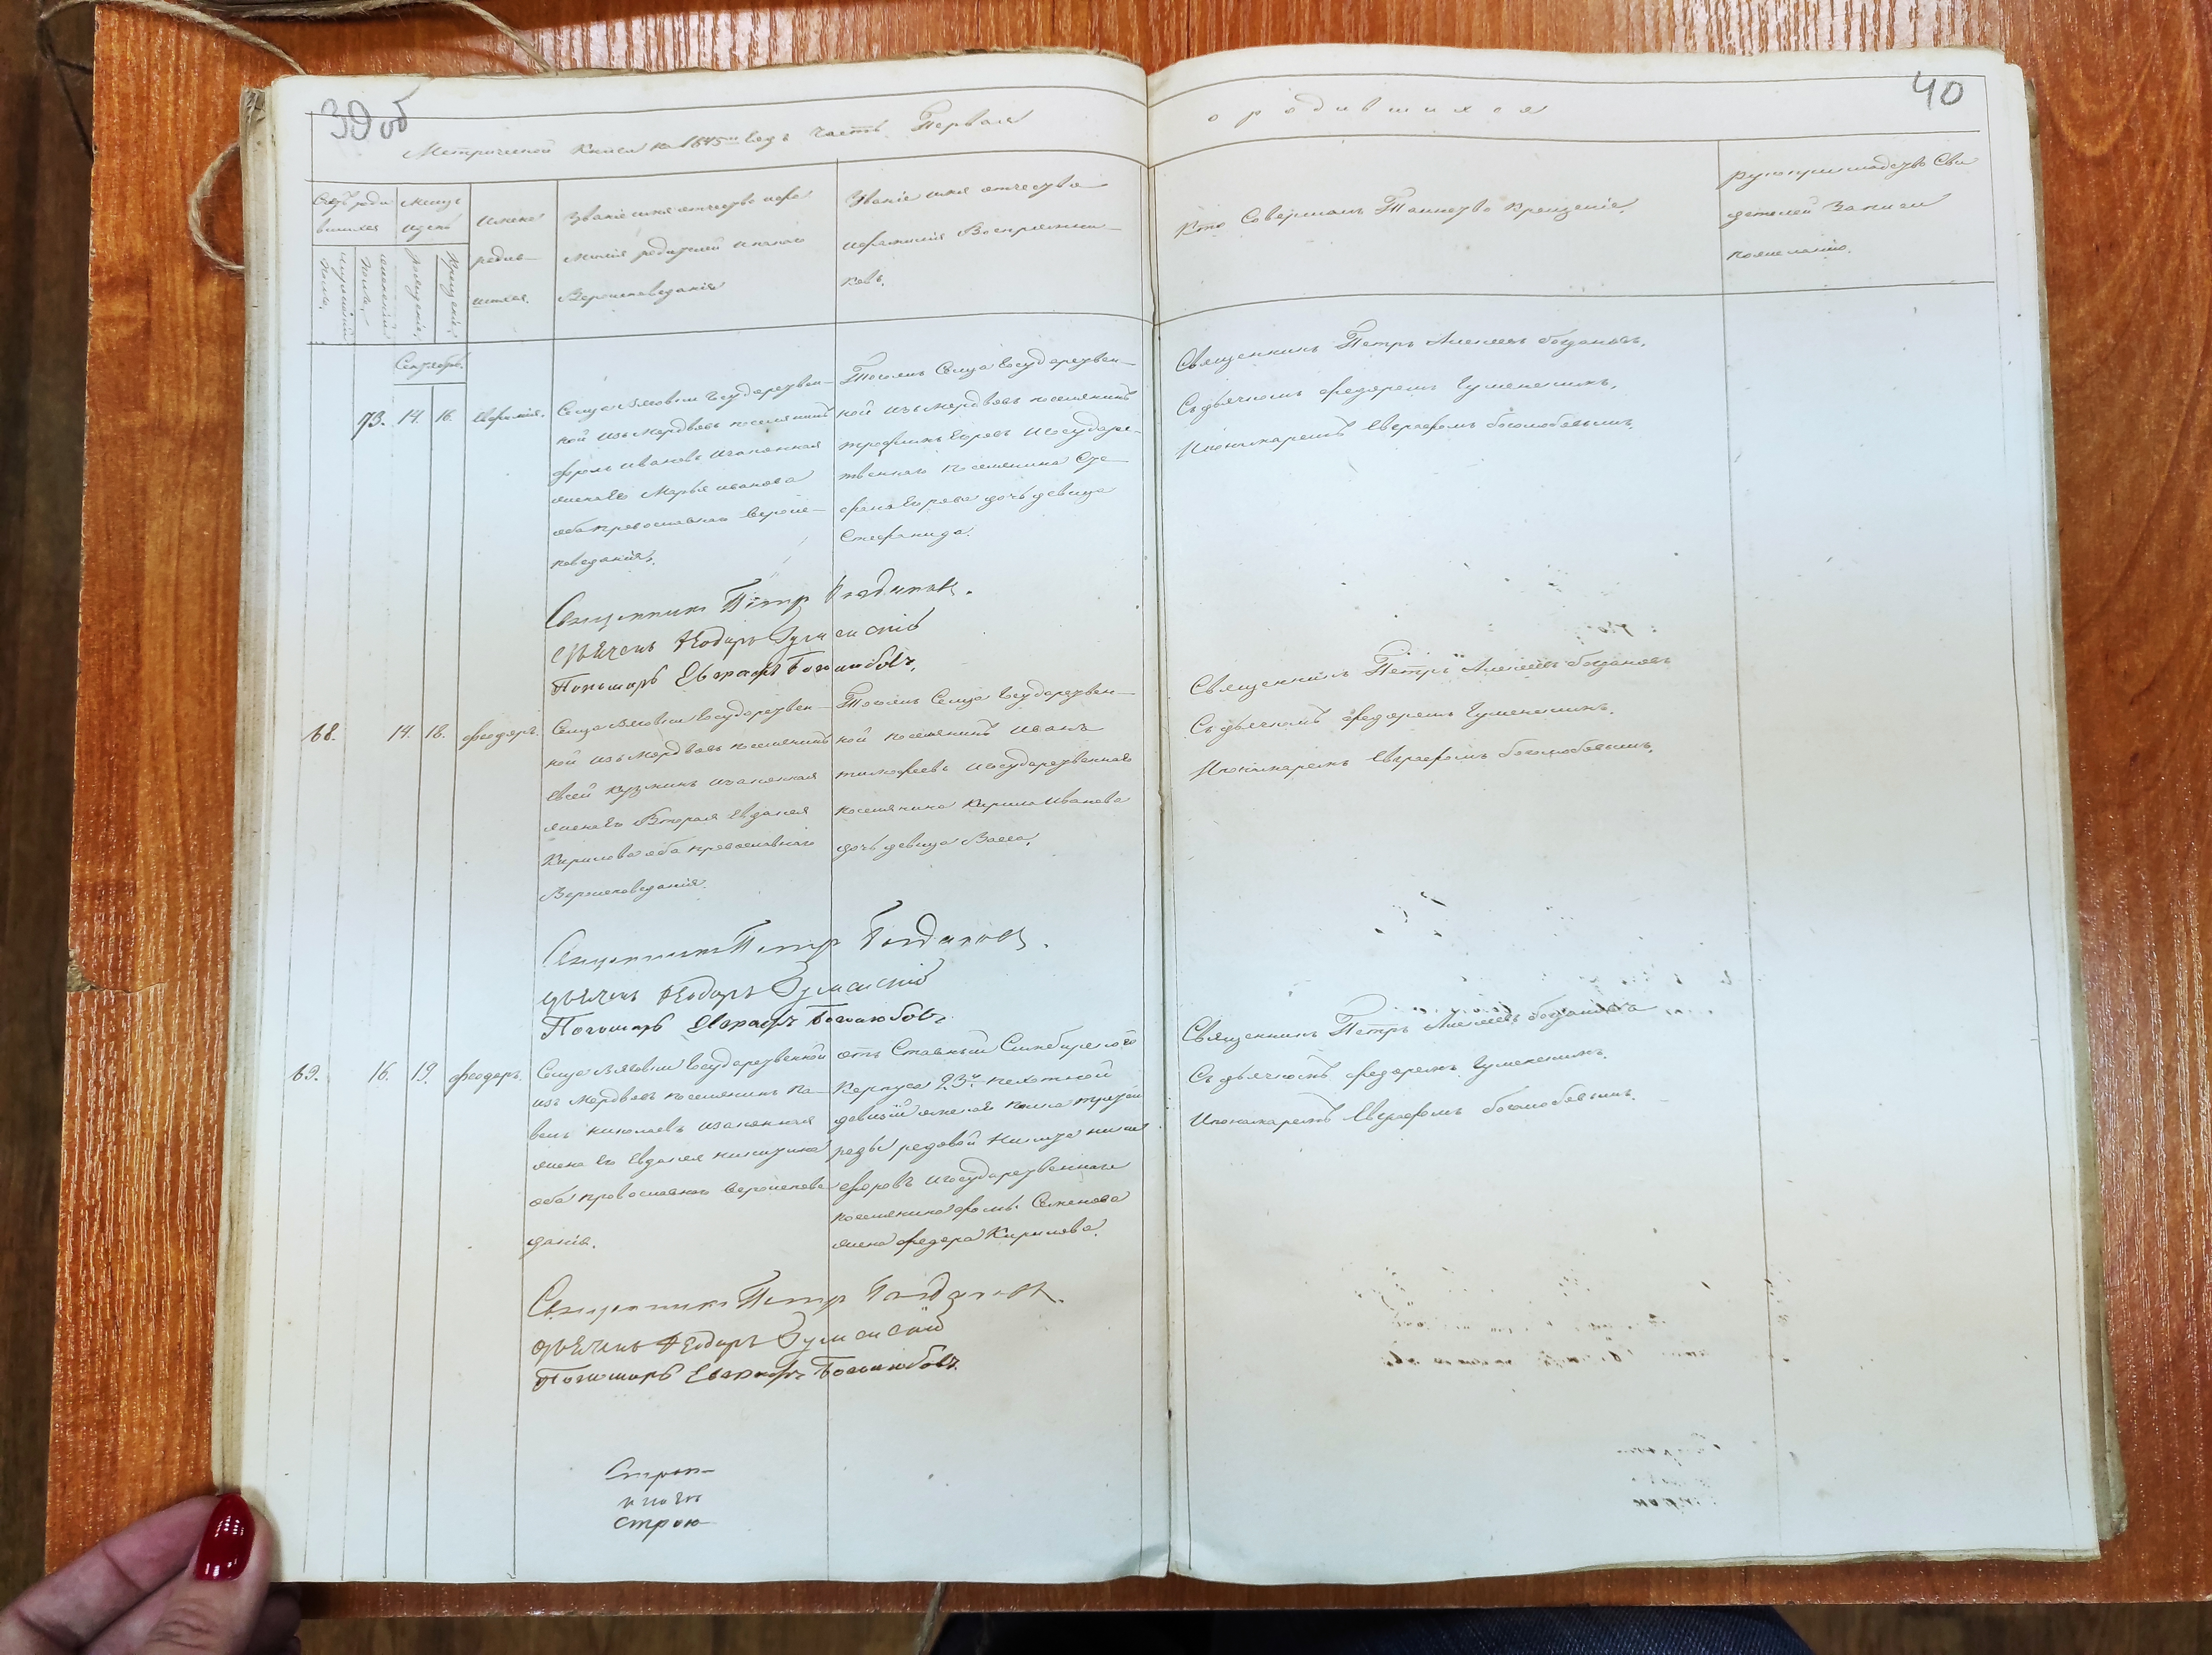 39 об
40
Метрической Книги на 1845й Годъ Часть Первая
о родившихся
Счетъ роди
вшихся
Мужескаго
пола.
Женскаго
пола.
Месяцъ
и день
Рождения.
Крещения.
Имена
родив
шихся.
Звание имя отчество и фа
милия родителей и какого
Вероисповедания
Звание имя отчество
и фамилия Восприемни
ковъ.
Кто Совершалъ Таинство Крещение.
Рукоприкладство Сви
детелей Записи
по желанию.
Сентябрь.
73. 14. 16. Евфимия.
Села государствен
ной изъ Мордвовъ поселянинъ
Фролъ Ивановъ и законная
жена Его Марья Иванова
оба православнаго вероис
поведания.
Тогожъ Села Государствен
ной изъ Мордвовъ поселянинъ
Трофимъ Егоровъ и Государс
твеннаго поселянина
Егорова дочь девица
Стефанида.
Священникъ Петръ Алексеевъ Богдановъ,
Съ дьячкомъ Федоромъ Гуменскимъ,
И пономаремъ Евграфомъ Боголюбовымъ.
Священникъ Петръ Богдановъ.
дьячекъ Феодоръ Гуменскій
Пономарь Евграфъ Боголюбовъ.
68. 14. 18. Феодоръ.
Села Государствен
ной изъ Мордвовъ поселянинъ
Евсей Кузминъ и законная
жена Его Вторая Евдокия
Кирилова оба православнаго
Вероисповедания.
Тогожъ Села Государствен
ной поселянинъ Иванъ
Тимофеевъ и Государственнаго
поселянина Кирила Иванова
дочь девица Васса.
Священникъ Петръ Алексеевъ Богдановъ
Съ дьячкомъ Федоромъ Гуменскимъ.
И пономаремъ Евграфомъ Боголюбовымъ.
Священникъ Петръ Богдановъ.
дьячекъ Феодоръ Гуменскій
Пономарь Евграфъ Боголюбовъ.
69. 16. 19. Феодоръ.
Села Государственной
изъ Мордвовъ поселянинъ Па
велъ Николаевъ и законная
жена Его Евдокия Никитина
оба православнаго вероиспове
дания.
отъ Ставный Симбирского
Корпуса 23й пехотной
рядовой Никита
и Государственнаго
поселянина Фрола Семенова
жена Федора Кирилова.
Священникъ Петръ Алексеевъ Богдановъ
Съ дьячкомъ Федоромъ Гуменскимъ.
И пономаремъ Евграфомъ Боголюбовымъ.
Священникъ Петръ Богдановъ.
дьячекъ Феодоръ Гуменскій
Пономарь Евграфъ Боголюбовъ.